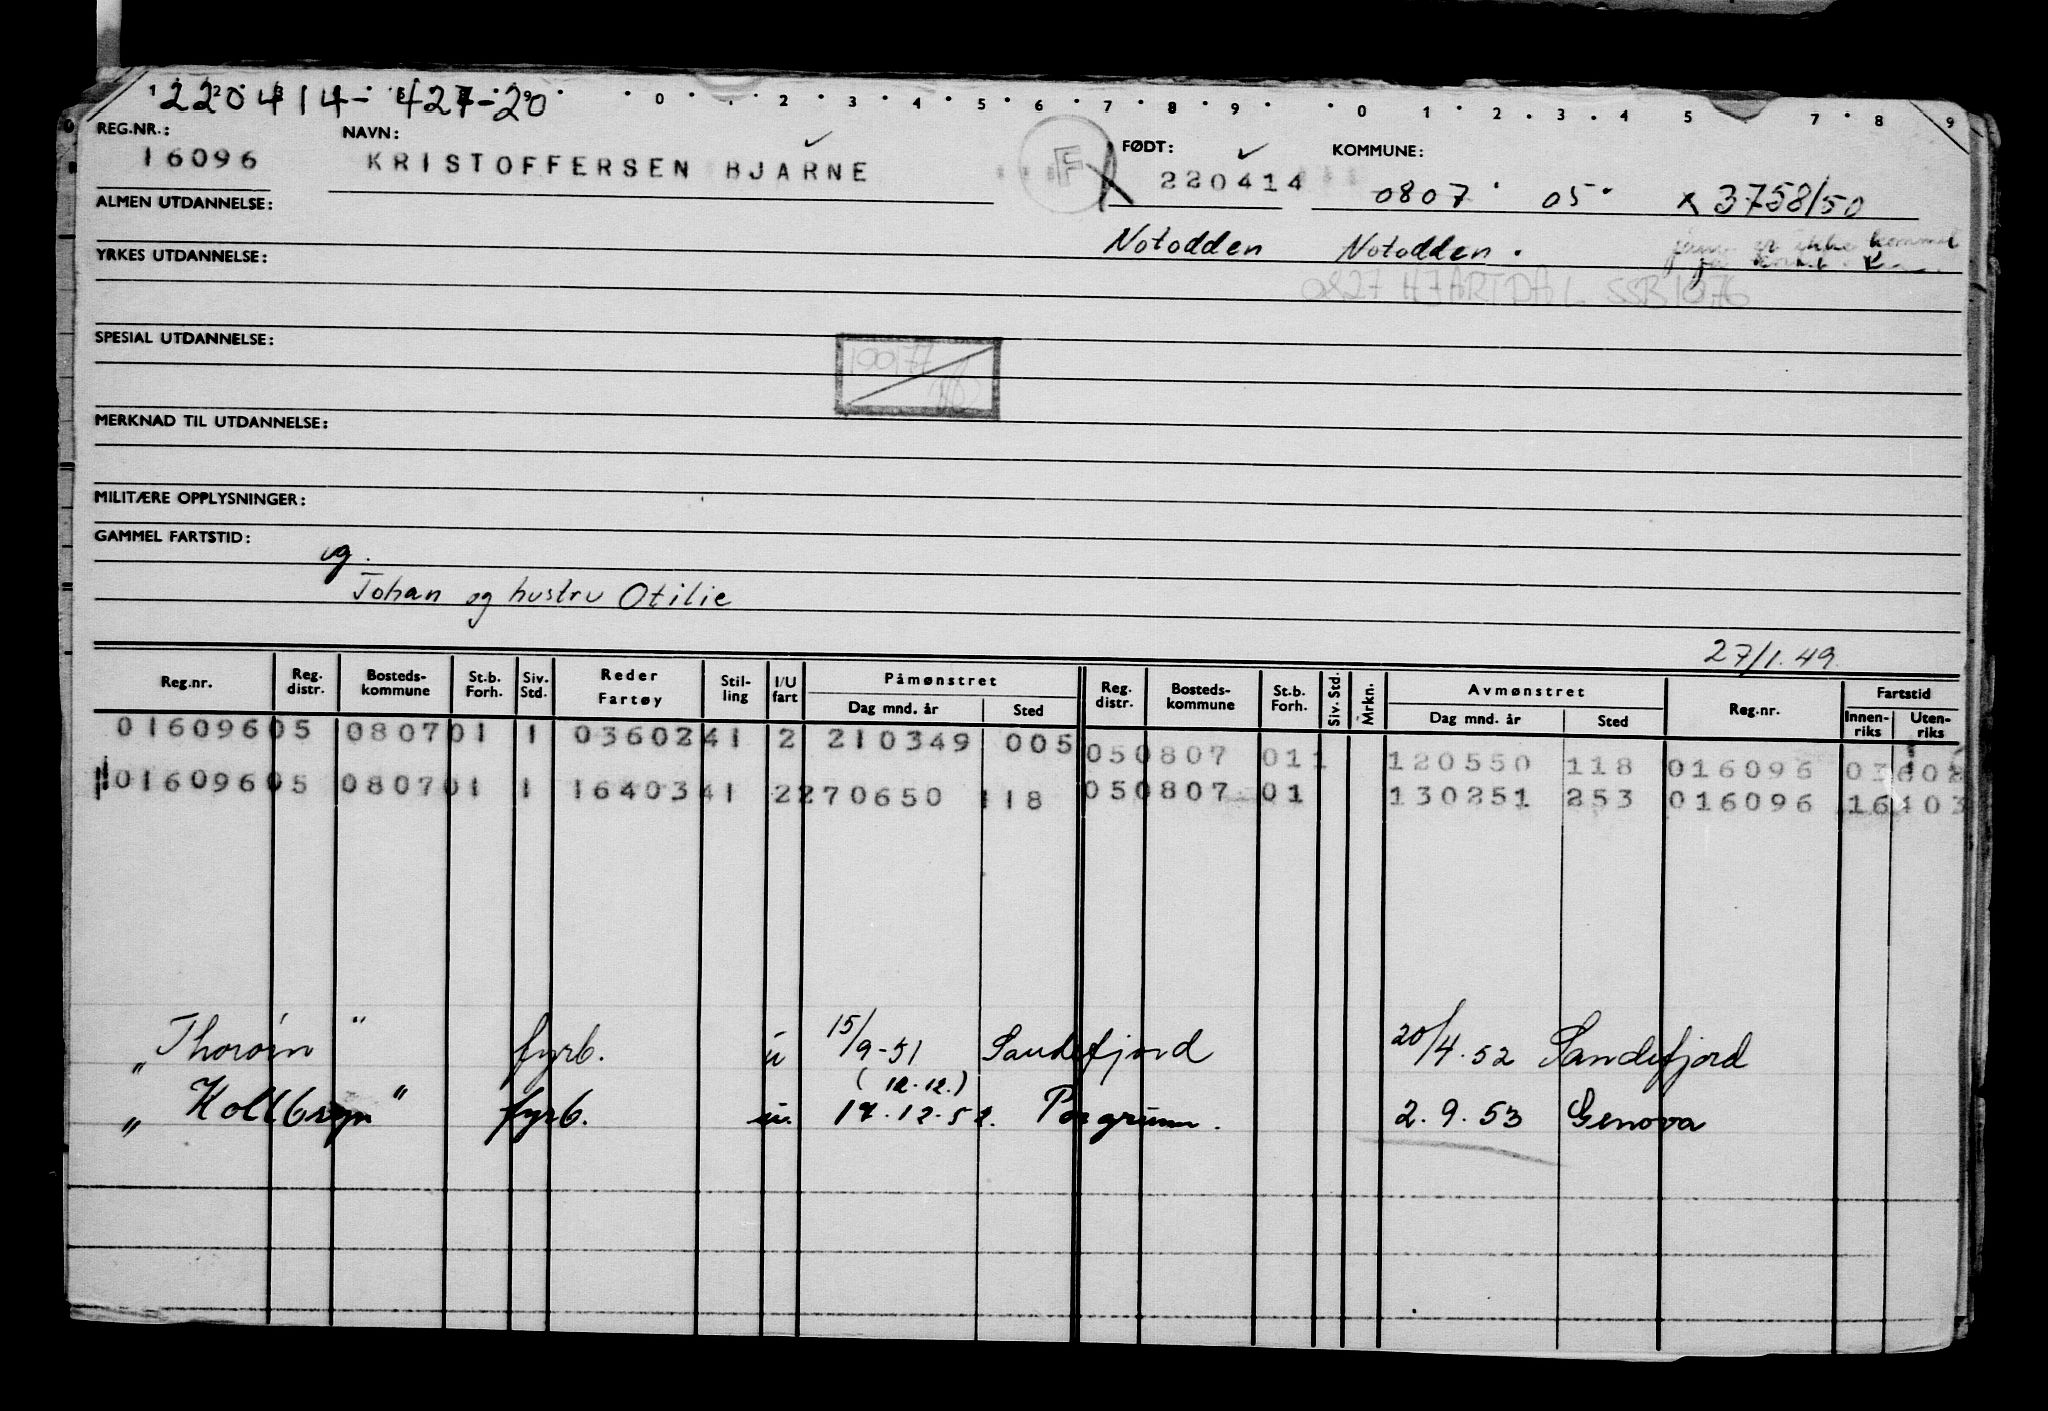 220414-42720
REG.NR.: NAVN: FØDT: KOMMUNE:
16096 KRISTOFFERSEN BJARNE F 220414 0807 05 x 3758/50
ALMEN UTDANNELSE:
Notodden Notodden.
er ikke kommet
YRKES UTDANNELSE:
0827 HJARTDAL SSB 1076
SPESIAL UTDANNELSE:
MERKNAD TIL UTDANNELSE:
MILITÆRE OPPLYSNINGER:
GAMMEL FARTSTID:
ug.
Johan og hustru Otilie
27/1.49
Reg.nr. Reg. distr. Bosteds-kommune St.b. Forh. Siv. Std. Reder Fartøy Stil-ling I/U fart Påmønstret Dag mnd. år Sted Reg. distr. Bosteds-kommune St.b. Forh. Siv. Std. Mrkn. Avmønstret Dag mnd. år Sted Reg.nr. Fartstid Innen-riks Uten-riks
016096 05 0807 01 1 03602 41 2 210349 005 05 0807 01 1 120550 118 016096 03602
016096 05 0807 01 1 16403 41 2 270650 118 05 0807 01 130251 253 016096 16403
"Thorøin" fyrb. u 15/9-51 Sandefjord 20/4.52 Sandefjord
(12.12.)
"Kollbryn" fyrb. u. 17.12.52. Porsgrunn. 2.9.53 Genova